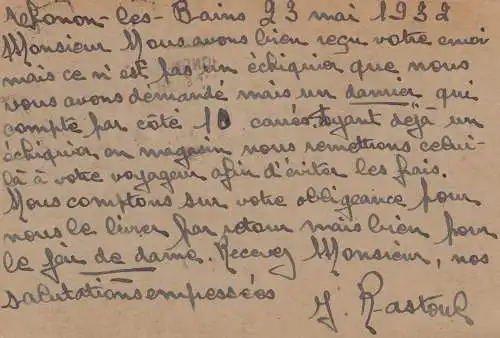 Thonon-les-Bains 23 mai 1932
Monsieur Nous avons bien reçu votre envoi
mais ce n'est pas un échiquier que nous
vous avons demandé mais un damier qui
compte par côte 10 carrés. Ayant déjà un
échiquier en magasin nous remettrons celui-
là à votre voyageur afin d'éviter les frais.
Nous comptons sur votre obligeance pour
nous le livrer par retour mais bien pour
le jeu de dame. Recevez Monsieur, nos
salutations empressées
J. Rastoul